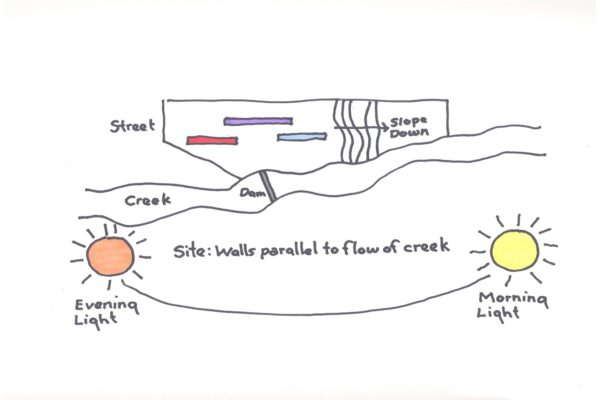 Slope
Down
Street
Dam
Creek
Site: Walls parallel to flow of creek
Evening
Light
Morning
Light